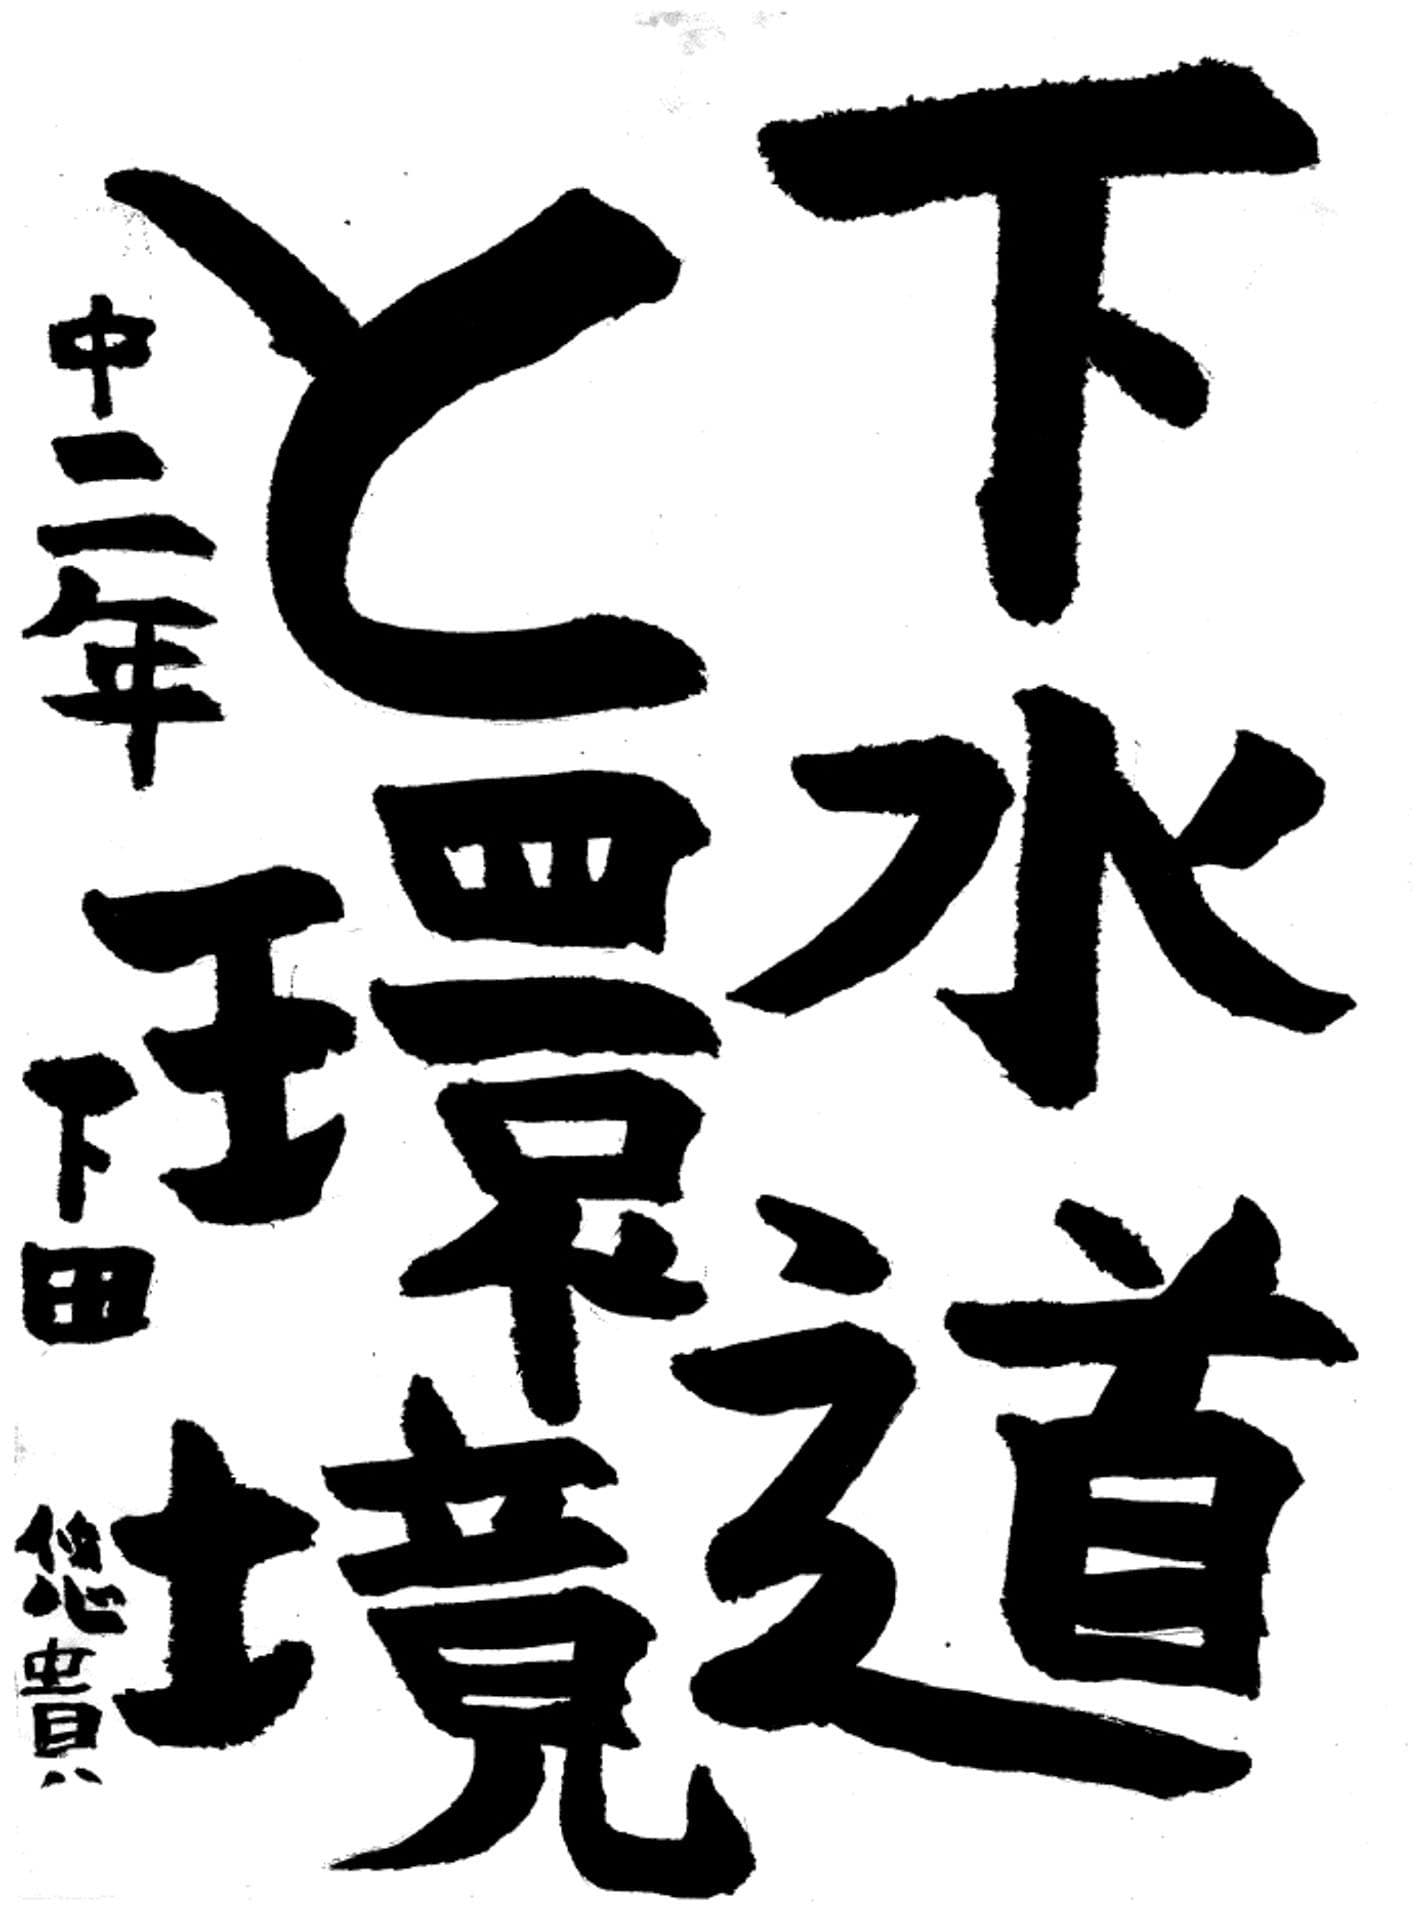 下水道
と環境
中二年 下田 悠貴